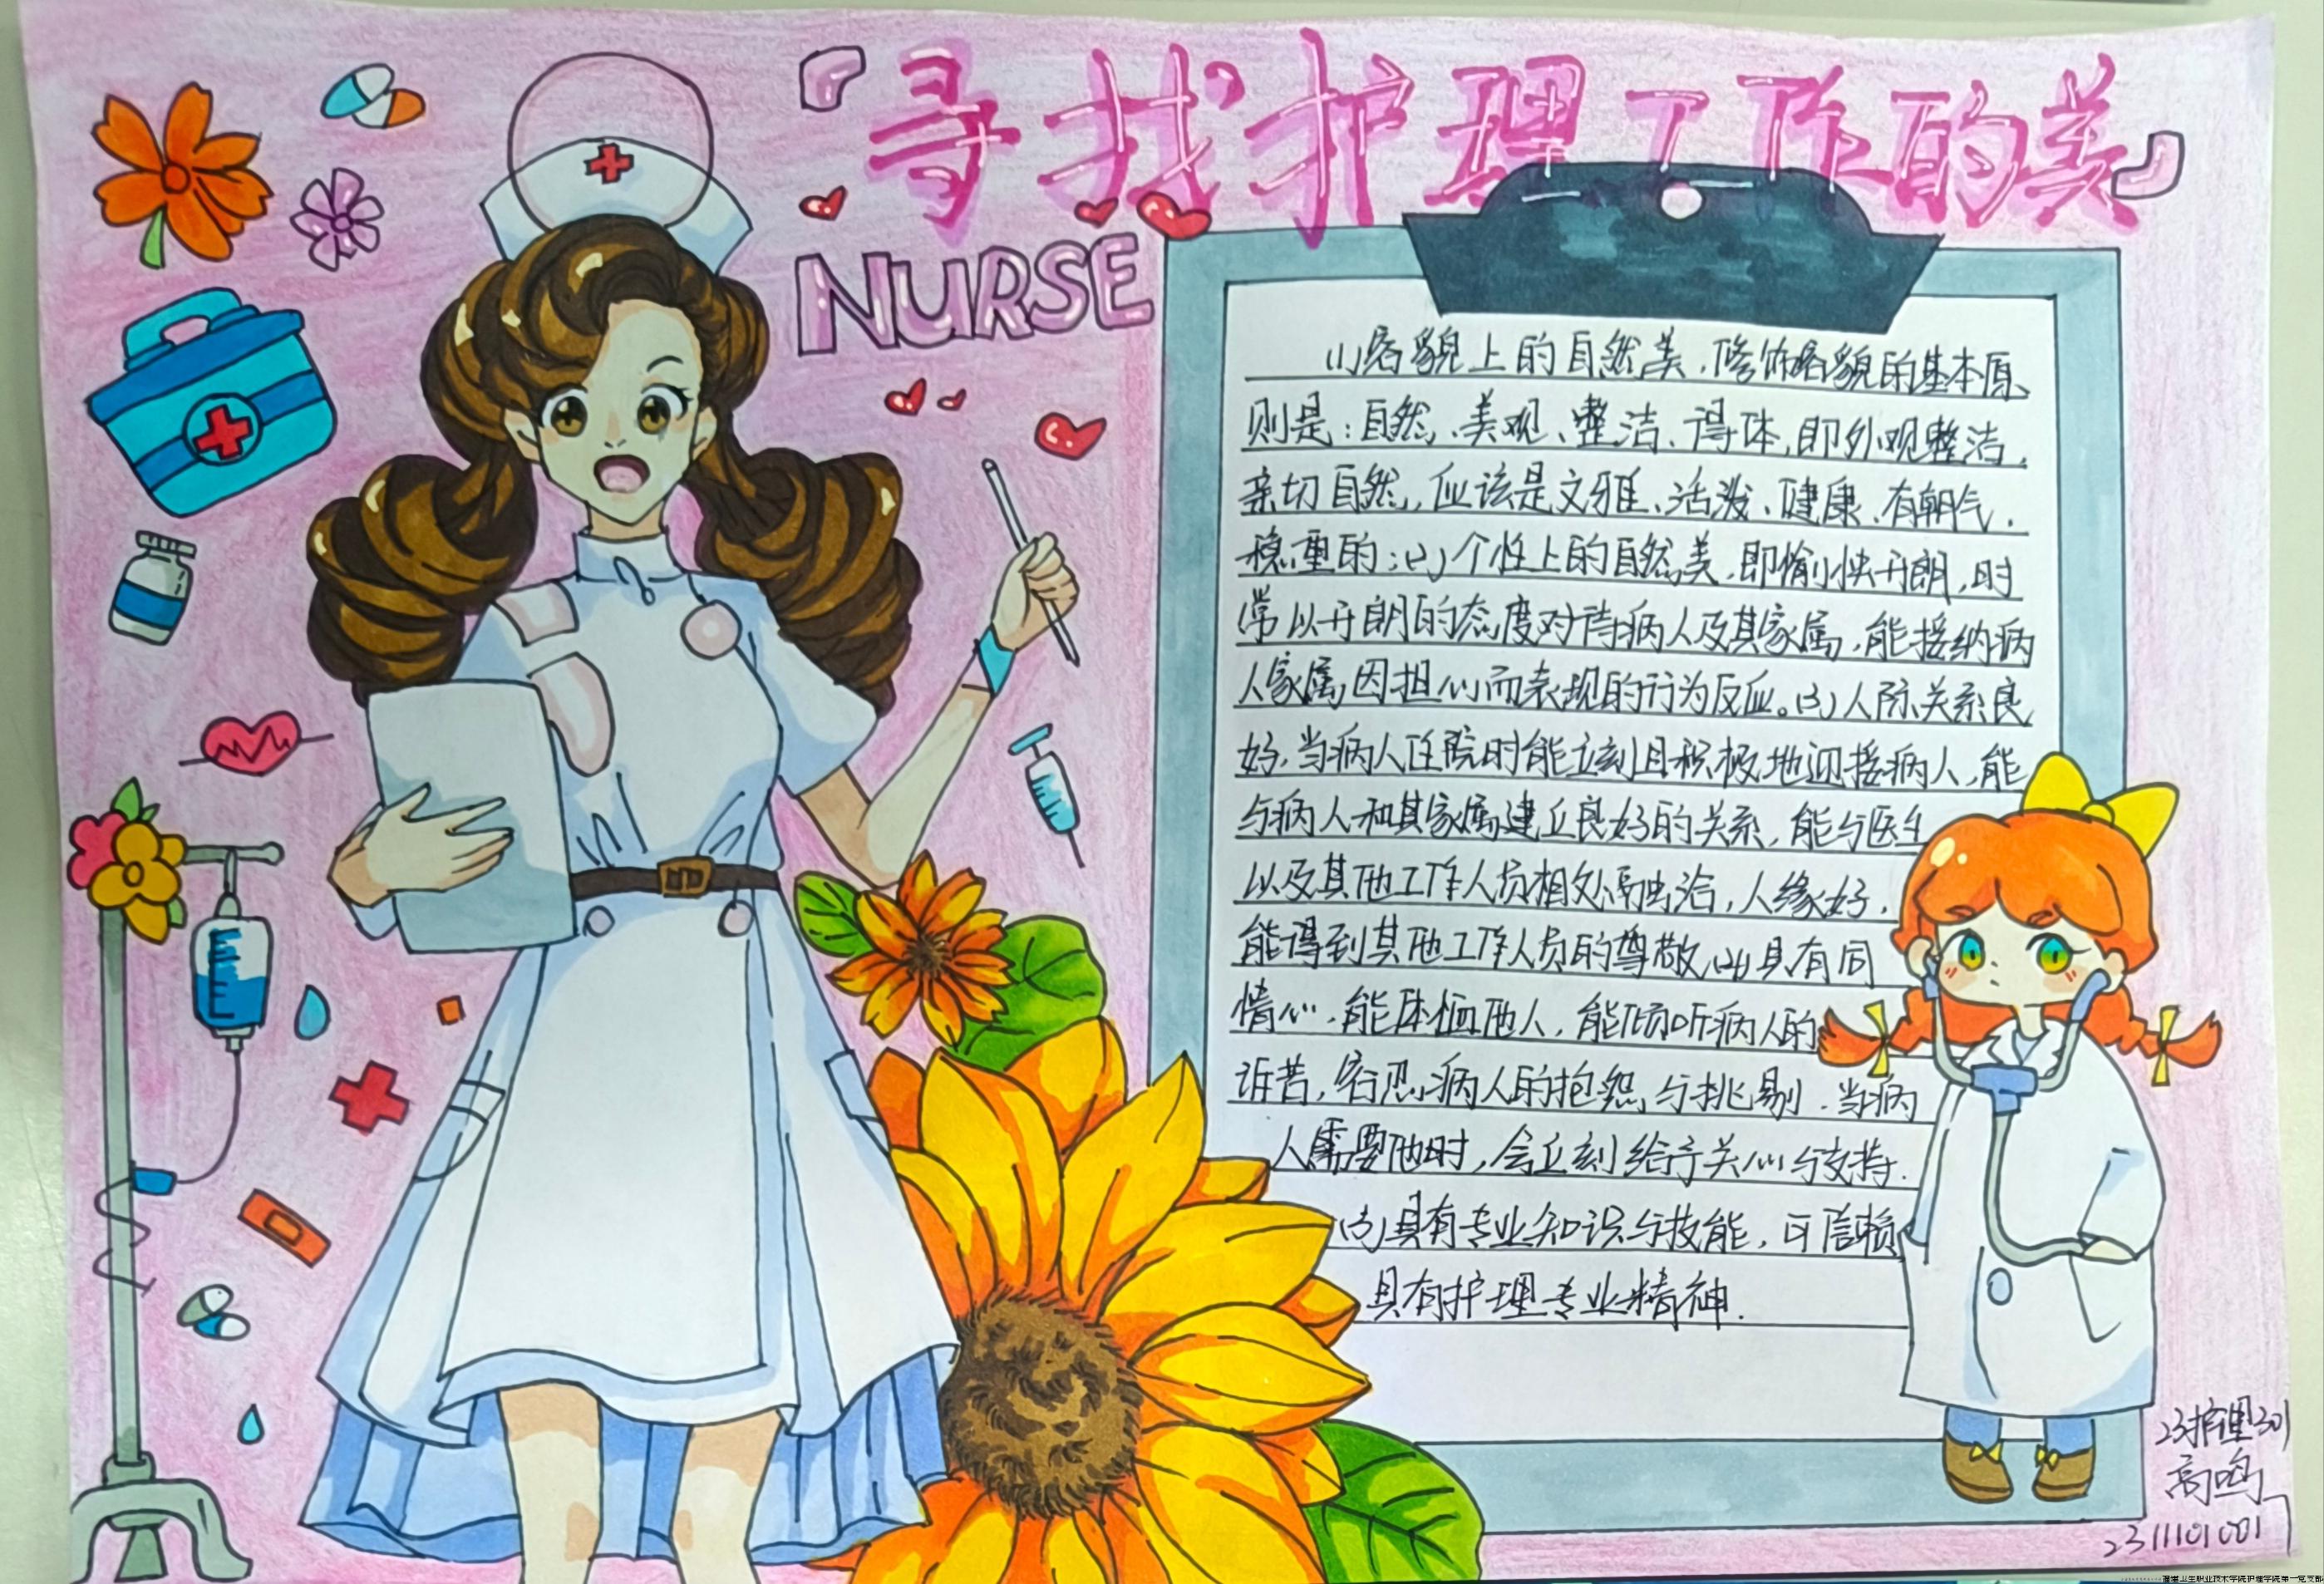 『寻找护理工作的美』
NURSE
(1)容貌上的自然美,修饰容貌的基本原
则是:自然、美观、整洁、得体,即外观整洁,
亲切自然,应该是文雅、活泼、健康、有朝气,
稳重的;(2)个性上的自然美,即愉快开朗,时
常以开朗的态度对待病人及其家属,能接纳病
人家属因担心而表现的行为反应。(3)人际关系良
好,当病人住院时能立刻且积极地迎接病人,能
与病人和其家属建立良好的关系,能与医生
以及其他工作人员相处得融洽,人缘好,
能得到其他工作人员的尊敬,(4)具有同
情心,能体恤他人,能倾听病人的
诉苦,容忍病人的抱怨与挑剔.当病
人需要他时,会立刻给予关心与支持.
(5)具有专业知识与技能,可信赖
具有护理专业精神.
23护理301
高鸣